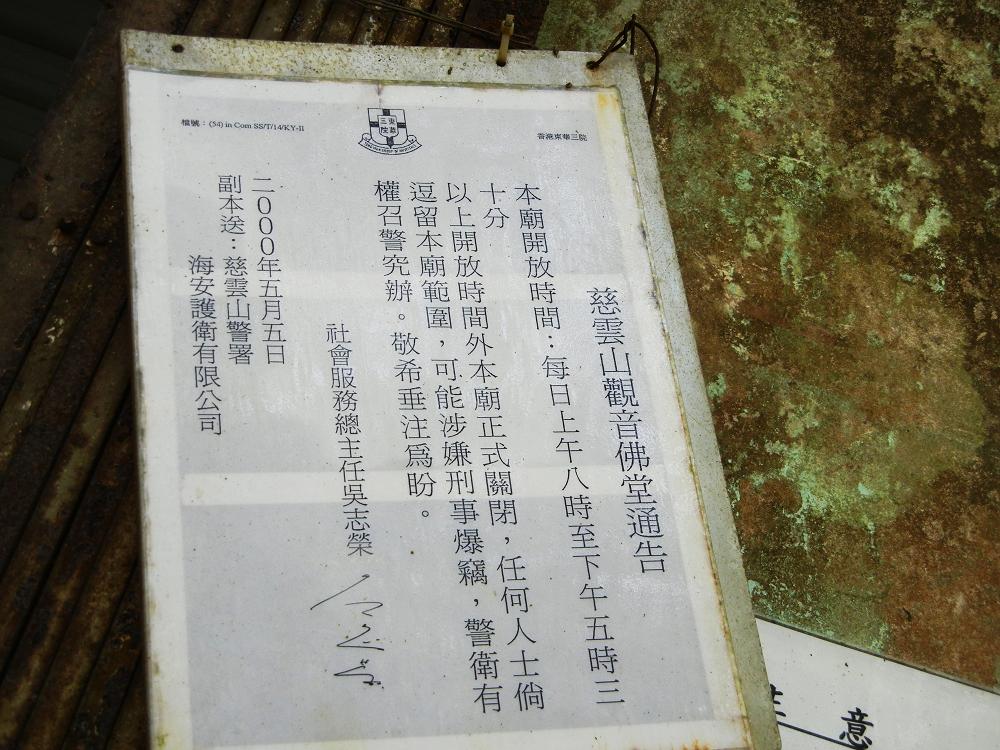 檔號：(54) in Com SS/T/14/KY-II
東華三院
香港東華三院
慈雲山觀音佛堂通告
本廟開放時間：每日上午八時至下午五時三
十分
以上開放時間外本廟正式關閉，任何人士倘
逗留本廟範圍，可能涉嫌刑事爆竊，警衛有
權召警究辦。敬希垂注爲盼。
社會服務總主任吳志榮
二000年五月五日
副本送：慈雲山警署
海安護衛有限公司
意